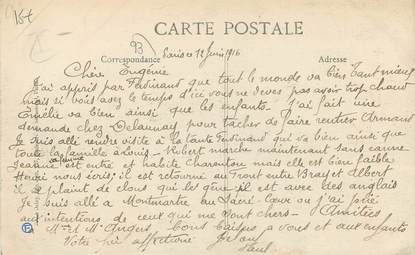 15f
CARTE POSTALE
93
Correspondance
Adresse
Paris ce 12 Juin 1916
Chère Eugénie
J'ai appris par Ferdinand que tout le monde va bien tant mieux
mais si vous avez le temps d'ici vous ne devez pas avoir trop chaud
Emélie va bien ainsi que les enfants. J'ai fait une
demande chez Delaunay pour tacher de faire rentrer Armand
Je suis allé rendre visite à la tante Ferdinand qui va bien ainsi que
toute la famille Robert marche maintenant sans canne
Jeanne sa femme est et habite Charenton mais elle est bien faible
Henri nous écris; il est retourné au front entre Bray et Albert
il se plaint de clous qui les gêne il est avec des anglais
Je suis allé a Montmartre au Sacré-Cœur ou j'ai prié
aux intentions de ceux qui me sont chers. Amitiés
a M. et Mme Angers, Bons baisers a vous et aux enfants
Votre affectionné
Paul